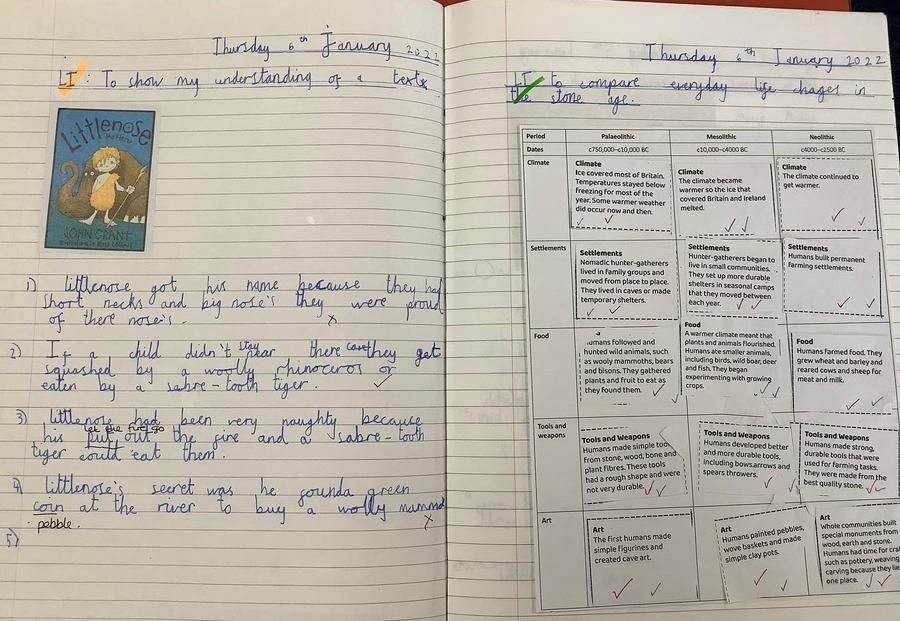 Thursday 6th January 2022
LI: To show my understanding of a text
Littlenose
the Hero
JOHN GRANT
1) littlenose got his name because they had
short necks and big nose's they were proud
of there nose's.
2) If a child didn't stay near there cave they get
squashed by a woolly rhinoceros or
eaten by a sabre-tooth tiger.
3) littlenose had been very naughty because
his let the fire go
put out the fire and a sabre-tooth
tiger could eat them.
4) littlenose's secret was he founda green
coin at the river to buy a wolly mammo
pebble.
5)
Thursday 6th January 2022
LI to compare everyday life chages in
the stone age.
Period Palaeolithic Mesolithic Neolithic
Dates c750,000–c10,000 BC c10,000–c4000 BC c4000–c2500 BC
Climate
Climate
Ice covered most of Britain.
Temperatures stayed below
freezing for most of the
year. Some warmer weather
did occur now and then.
Climate
The climate became
warmer so the ice that
covered Britain and Ireland
melted.
Climate
The climate continued to
get warmer.
Settlements
Settlements
Nomadic hunter-gatherers
lived in family groups and
moved from place to place.
They lived in caves or made
temporary shelters.
Settlements
Hunter-gatherers began to
live in small communities.
They set up more durable
shelters in seasonal camps
that they moved between
each year.
Settlements
Humans built permanent
farming settlements.
Food
umans followed and
hunted wild animals, such
as woolly mammoths, bears
and bisons. They gathered
plants and fruit to eat as
they found them.
Food
A warmer climate meant that
plants and animals flourished.
Humans ate smaller animals,
including birds, wild boar, deer
and fish. They began
experimenting with growing
crops.
Food
Humans farmed food. They
grew wheat and barley and
reared cows and sheep for
meat and milk.
Tools and
weapons
Tools and Weapons
Humans made simple tool
from stone, wood, bone and
plant fibres. These tools
had a rough shape and were
not very durable.
Tools and Weapons
Humans developed better
and more durable tools,
including bows, arrows and
spears throwers.
Tools and Weapons
Humans made strong,
durable tools that were
used for farming tasks.
They were made from the
best quality stone.
Art
Art
The first humans made
simple figurines and
created cave art.
Art
Humans painted pebbles,
wove baskets and made
simple clay pots.
Art
Whole communities built
special monuments from
wood, earth and stone.
Humans had time for cra
such as pottery, weaving
carving because they live
one place.